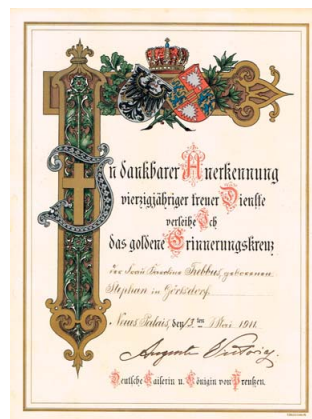 In dankbarer Anerkennung
vierzigjähriger treuer Dienste
verleihe Ich
das goldene Erinnerungskreuz
der Frau Karoline Trebbus, geborenen
Stephan in Görlsdorf.
Neues Palais, den 13ten Mai 1911.
Auguste Victoria
Deutsche Kaiserin u. Königin von Preußen.